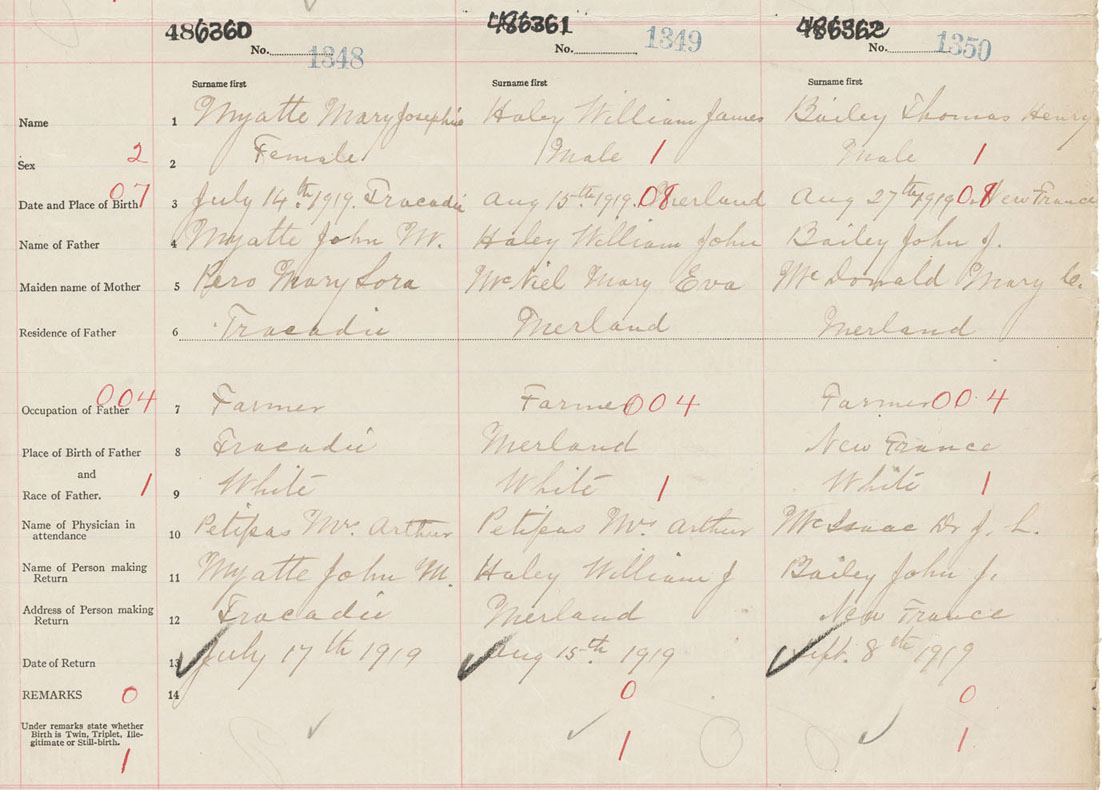 486360 486361 486362
No. 1348 No. 1349 No. 1350
Surname first Surname first Surname first
Name 1 Myatte Mary Josephine Haley William James Bailey Thomas Henry
Sex 2 2 Female Male 1 Male 1
07
Date and Place of Birth 3 July 14th 1919. Tracadie Aug 15th 1919. 08 Merland Aug 27th 1919 08 New France
Name of Father 4 Myatte John M. Haley William John Bailey John J.
Maiden name of Mother 5 Pero Mary Lora McNiel Mary Eva McDonald Mary C.
Residence of Father 6 Tracadie Merland Merland
004
Occupation of Father 7 Farmer Farmer 004 Farmer 004
Place of Birth of Father 8 Tracadie Merland New France
and
Race of Father. 1 9 White White 1 White 1
Name of Physician in
attendance 10 Petipas Mrs. Arthur Petipas Mrs Arthur McIsaac Dr J. L.
Name of Person making
Return 11 Myatte John M. Haley William J Bailey John J.
Address of Person making
Return 12 Tracadie Merland New France
Date of Return 13 July 17th 1919 Aug 15th 1919 Sept. 8th 1919
REMARKS 0 14 0 0
Under remarks state whether
Birth is Twin, Triplet, Ille-
gitimate or Still-birth.
1 1 1